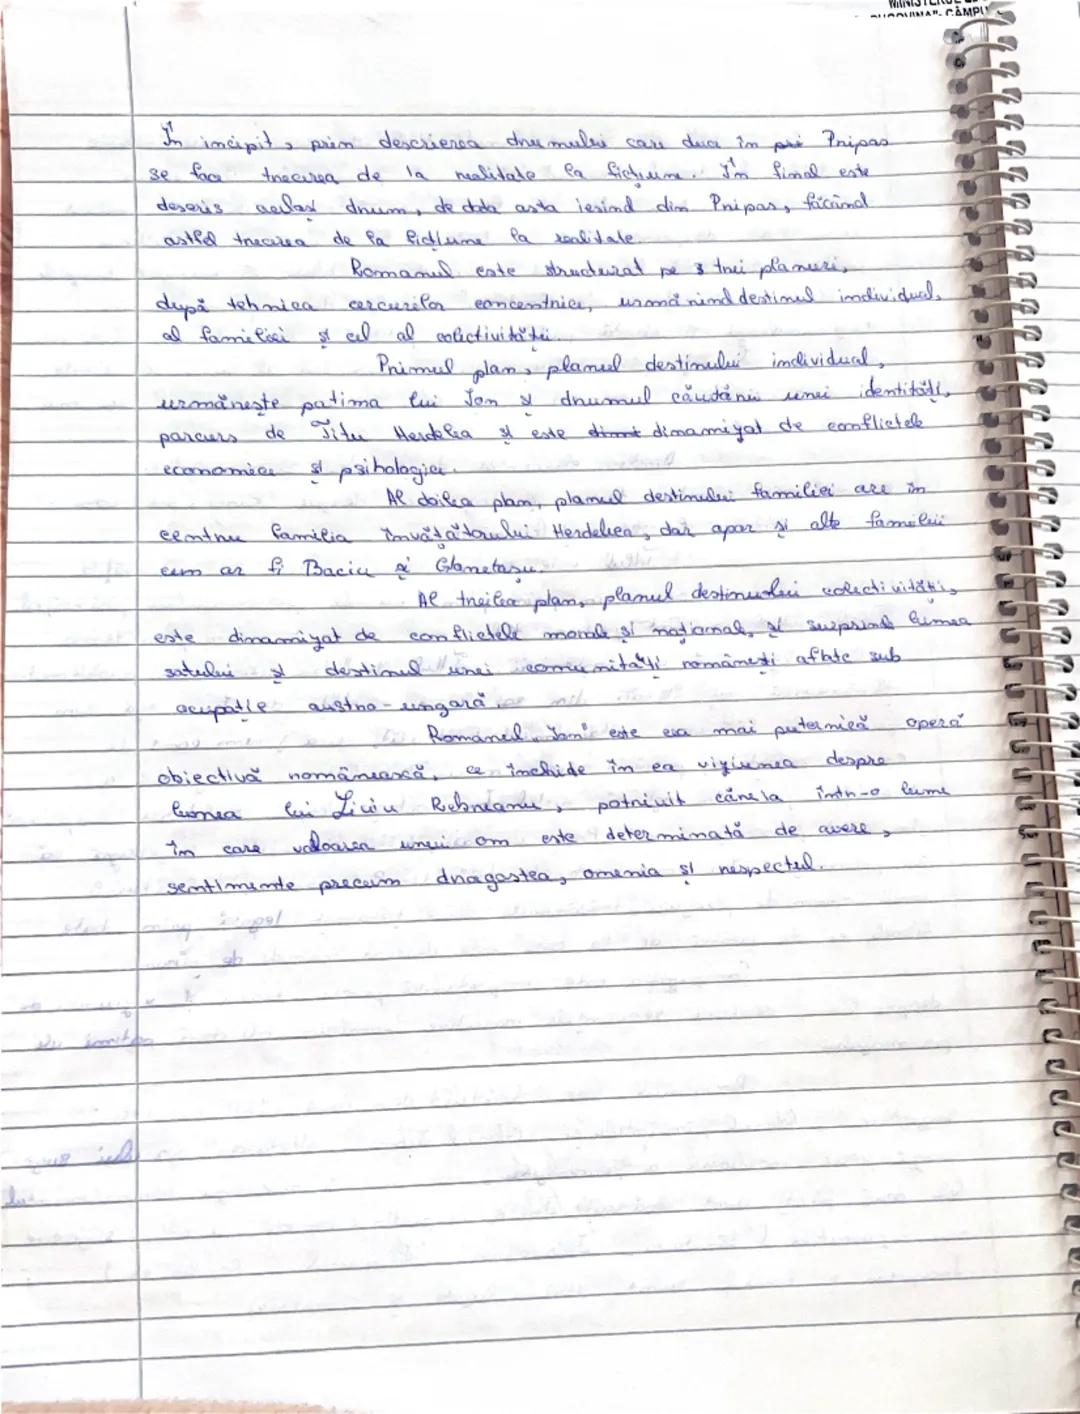 CÂMPU
În incipit, prin descrierea drumului care duce în Pripas
se face trecerea de la realitate la ficțiune. În final este
descris același drum, de data asta ieșind din Pripas, făcând
astfel trecerea de la ficțiune la realitate.
Romanul este structurat pe 3 trei planuri,
după tehnica cercurilor concentrice, urmărind destinul individual,
al familiei și cel al colectivității.
Primul plan, planul destinului individual,
urmărește patima lui Ion și drumul căutării unei identități,
parcurs de Titu Herdelea și este dinamizat de conflictele
economice și psihologice.
Al doilea plan, planul destinului familiei are în
centru familia învățătorului Herdelea, dar apar și alte familii
cum ar fi Baciu și Glanetașu.
Al treilea plan, planul destinului colectivității,
este dinamizat de conflictele morale și naționale, și surprinde lumea
satului și destinul unei comunități românești aflate sub
ocupație austro-ungară.
Romanul „Ion" este cea mai puternică operă
obiectivă românească, ce închide în ea viziunea despre
lumea lui Liviu Rebreanu, potrivit căreia într-o lume
în care valoarea unui om este determinată de avere,
sentimente precum dragostea, omenia și respectul.